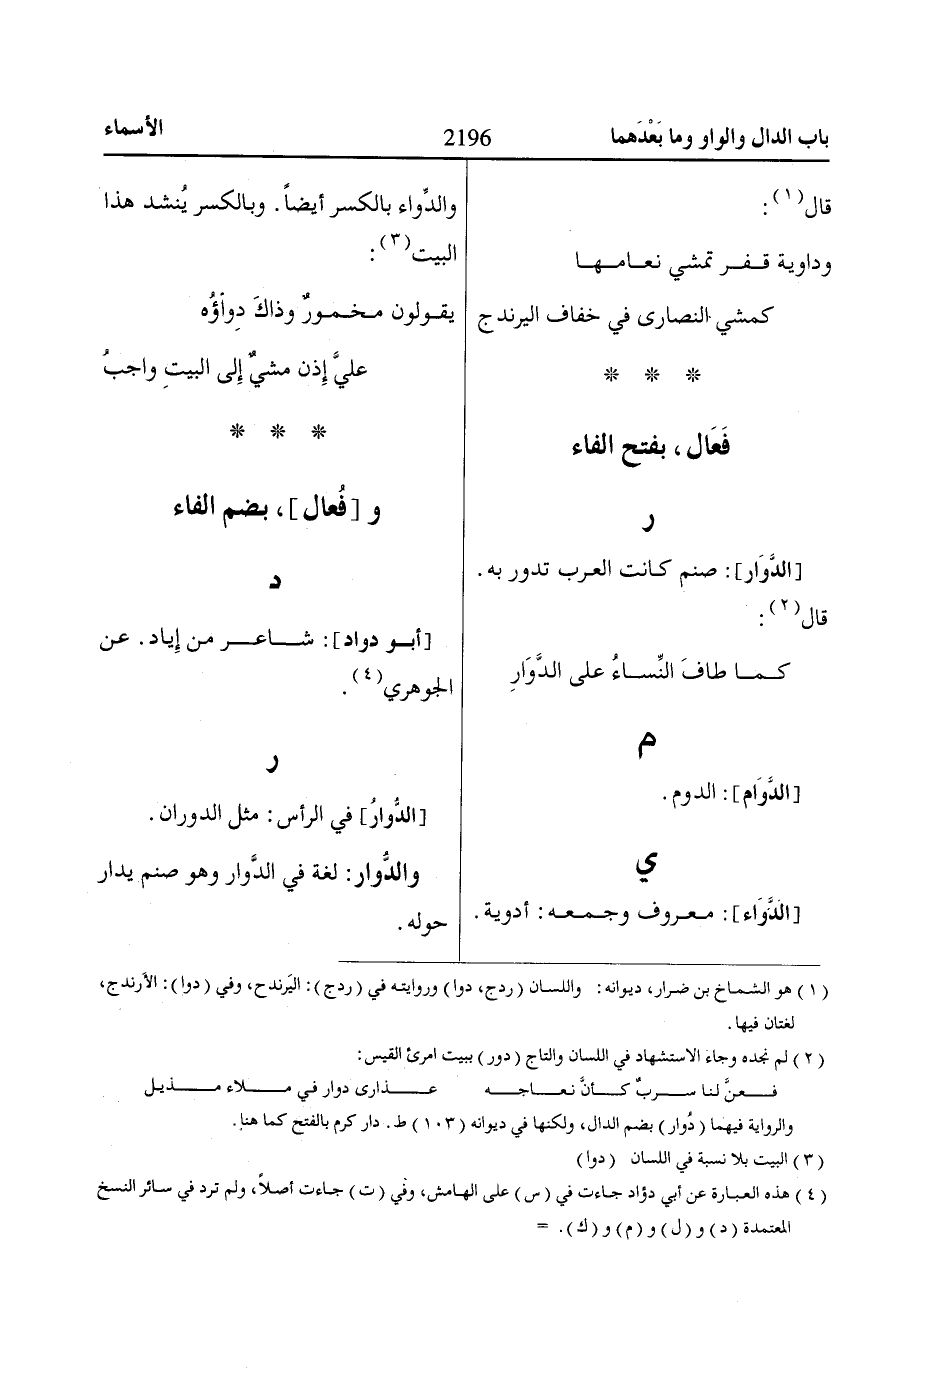 باب الدال والواو وما بَعْدَهما
2196
الأسماء
قال(١):
وداوية قـفـر تمشي نعـامـهـا
كمشي النصارى في خفاف اليرندج
* * *
فَعَال، بفتح الفاء
ر
[الدَّوَار]: صنم كانت العرب تدور به.
قال(٢):
كـمـا طافَ النِّسـاءُ على الدَّوَارِ
م
[الدَّوَام]: الدوم.
ي
[الدَّوَاء]: معروف وجـمـعه: أدوية.
والدِّواء بالكسر أيضاً. وبالكسر يُنشد هذا
البيت(٣):
يقـولون مـخـمـورٌ وذاكَ دِواْؤُه
عليَّ إذن مشيٌ إلى البيتِ واجبُ
* * *
و [فُعال]، بضم الفاء
د
[أبـو دواد]: شـاعـر من إياد. عن
الجوهري(٤).
ر
[الدُّوارُ] في الرأس: مثل الدوران.
والدُّوار: لغة في الدَّوار وهو صنم يدار
حوله.
(١) هو الشماخ بن ضرار، ديوانه: واللسان (ردج، دوا) وروايته في (ردج): اليَرندح، وفي (دوا): الأرندج،
لغتان فيها.
(٢) لم نجده وجاء الاستشهاد في اللسان والتاج (دور) ببيت امرئ القيس:
فـعنَّ لنا سـربٌ كـأنَّ نعـاجـه عـذارى دوار في مـلاء مـذيل
والرواية فيهما (دُوار) بضم الدال، ولكنها في ديوانه (١٠٣) ط. دار كرم بالفتح كما هنا.
(٣) البيت بلا نسبة في اللسان (دوا)
(٤) هذه العبارة عن أبي دؤاد جاءت في (س) على الهامش، وفي (ت) جاءت أصلاً، ولم ترد في سائر النسخ
المعتمدة (د) و(ل) و(م) و(ك). =